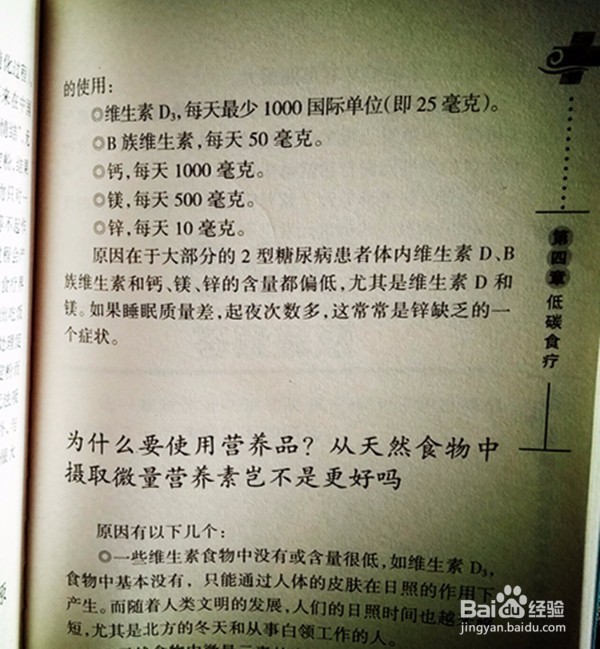 的使用：
◎维生素 D₃，每天最少 1000 国际单位（即 25 毫克）。
◎B 族维生素，每天 50 毫克。
◎钙，每天 1000 毫克。
◎镁，每天 500 毫克。
◎锌，每天 10 毫克。
原因在于大部分的 2 型糖尿病患者体内维生素 D、B
族维生素和钙、镁、锌的含量都偏低，尤其是维生素 D 和
镁。如果睡眠质量差，起夜次数多，这常常是锌缺乏的一
个症状。
为什么要使用营养品？从天然食物中
摄取微量营养素岂不是更好吗
原因有以下几个：
◎一些维生素食物中没有或含量很低，如维生素 D₃，
食物中基本没有，只能通过人体的皮肤在日照的作用下
产生。而随着人类文明的发展，人们的日照时间也越
短，尤其是北方的冬天和从事白领工作的人。
第四章 低碳食疗
Bai 经验
jingyan.baidu.com